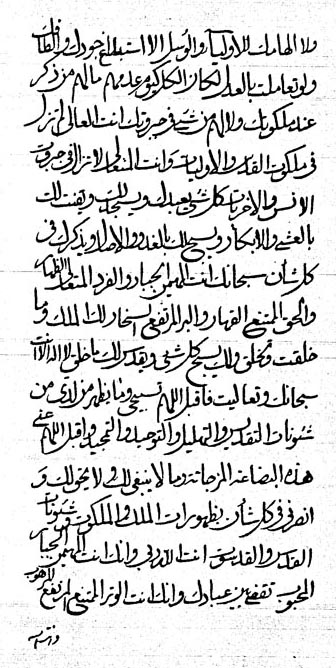 ولا الهامك للاولياء والوسل الا استبلاغ جودك و
ولو تعاملت بالعدل لكان الكل كيوم عدمهم مالهم من ذكر
عند ملكوتك ولالهم من شيء في جبروتك انت العالي لم تزل
في ملكوت القدس والاوليات وانت المتعالي لا تزال في جبروت
الانس والاخريات كل شيء يعبدك ويسجد لك ويقنت لك
بالعشي والابكار ويسبح لك بالغدو والاصال ويذكرك في
كل شأن سبحانك انت المهيمن الجبار والفرد المتعال الظهار
والحق الممتنع القهار والبر المرتفع السحار لك الملك وما
خلقت وتخلق ولك يسبح كل شيء ويقدس لك ما خلق لا اله الا انت
سبحانك وتعاليت فاقبل اللهم تسبيحي وما يظهر من لدي من
شئونات التقديس والتهليل والتوحيد والتمجيد واقبل اللهم عني
هذه البضاعة المزجاة وما لا ينبغي لك ولا يحق لك و
في كل شأن بظهورات الملك والملكوت وشئونات
القدس والتقديس انت الله ربي وانك انت المهيمن الجبار
المحبوب تقضي بين عبادك وانك انت الوتر الممتنع المرتفع الموهوب